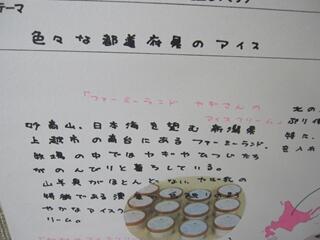 テーマ
色々な都道府県のアイス
「ファーミーランド ヤギさんの
アイスクリーム」
妙高山、日本海を望む新潟県
上越市の高台にあるファーミーランド。
牧場の中ではヤギやひつじたち
がのんびりと暮らしている。
山羊臭がほとんどない、ヤギ乳の
特徴である
やかなアイスク
リーム。
北の
特に、